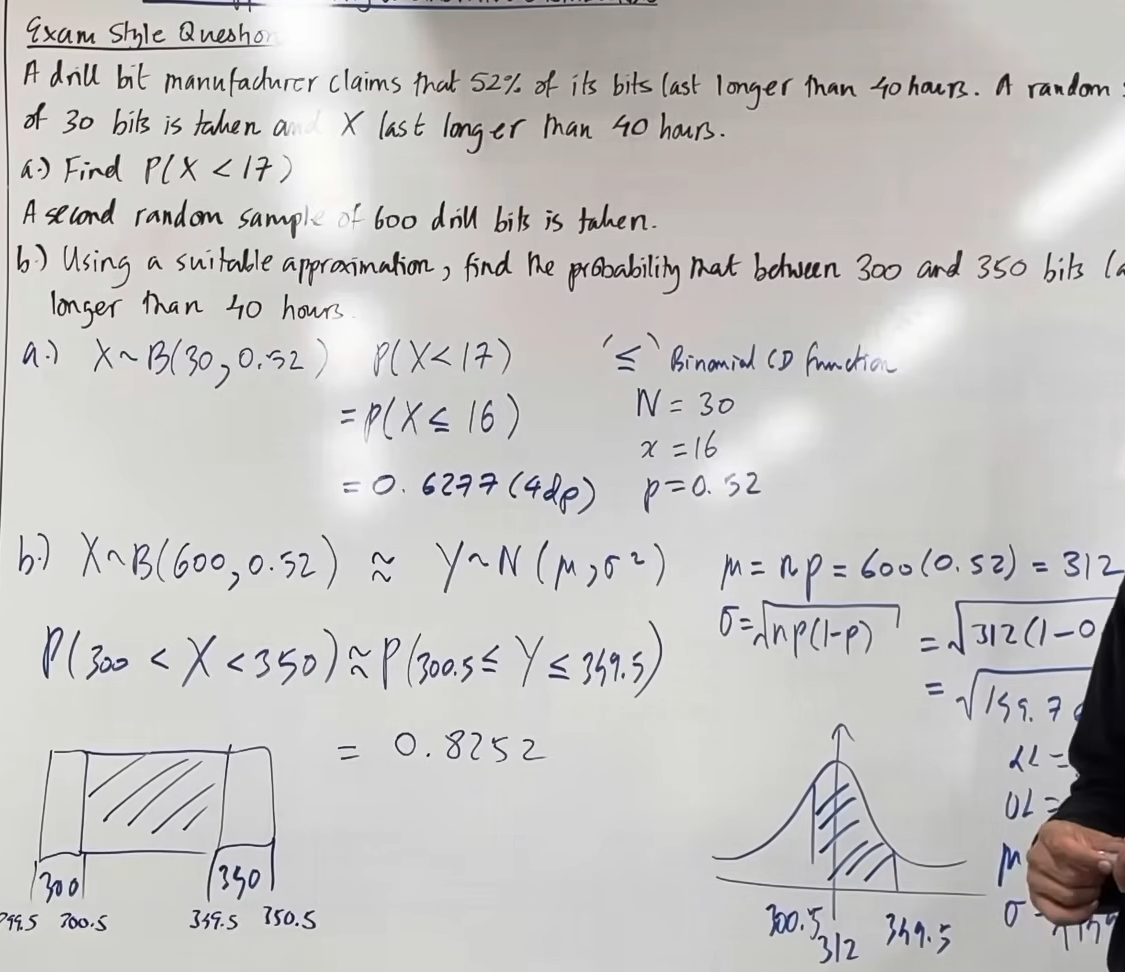 Exam Style Question
A drill bit manufacturer claims that 52% of its bits last longer than 40 hours. A random
of 30 bits is taken and X last longer than 40 hours.
a.) Find P(X < 17)
A second random sample of 600 drill bits is taken.
b.) Using a suitable approximation, find the probability that between 300 and 350 bits
longer than 40 hours.
a.) X ~ B(30, 0.52) P(X < 17) '≤' Binomial CD function
= P(X ≤ 16) N = 30
x = 16
= 0.6277 (4dp) p = 0.52
b.) X ~ B(600, 0.52) ≈ Y ~ N(μ, σ²) μ = np = 600(0.52) = 312
σ = √np(1-p) = √312(1-0
P(300 < X < 350) ≈ P(300.5 ≤ Y ≤ 349.5) = √149.76
= 0.8252
LL =
UL =
300 350 μ
299.5 300.5 349.5 350.5 300.5 312 349.5 σ